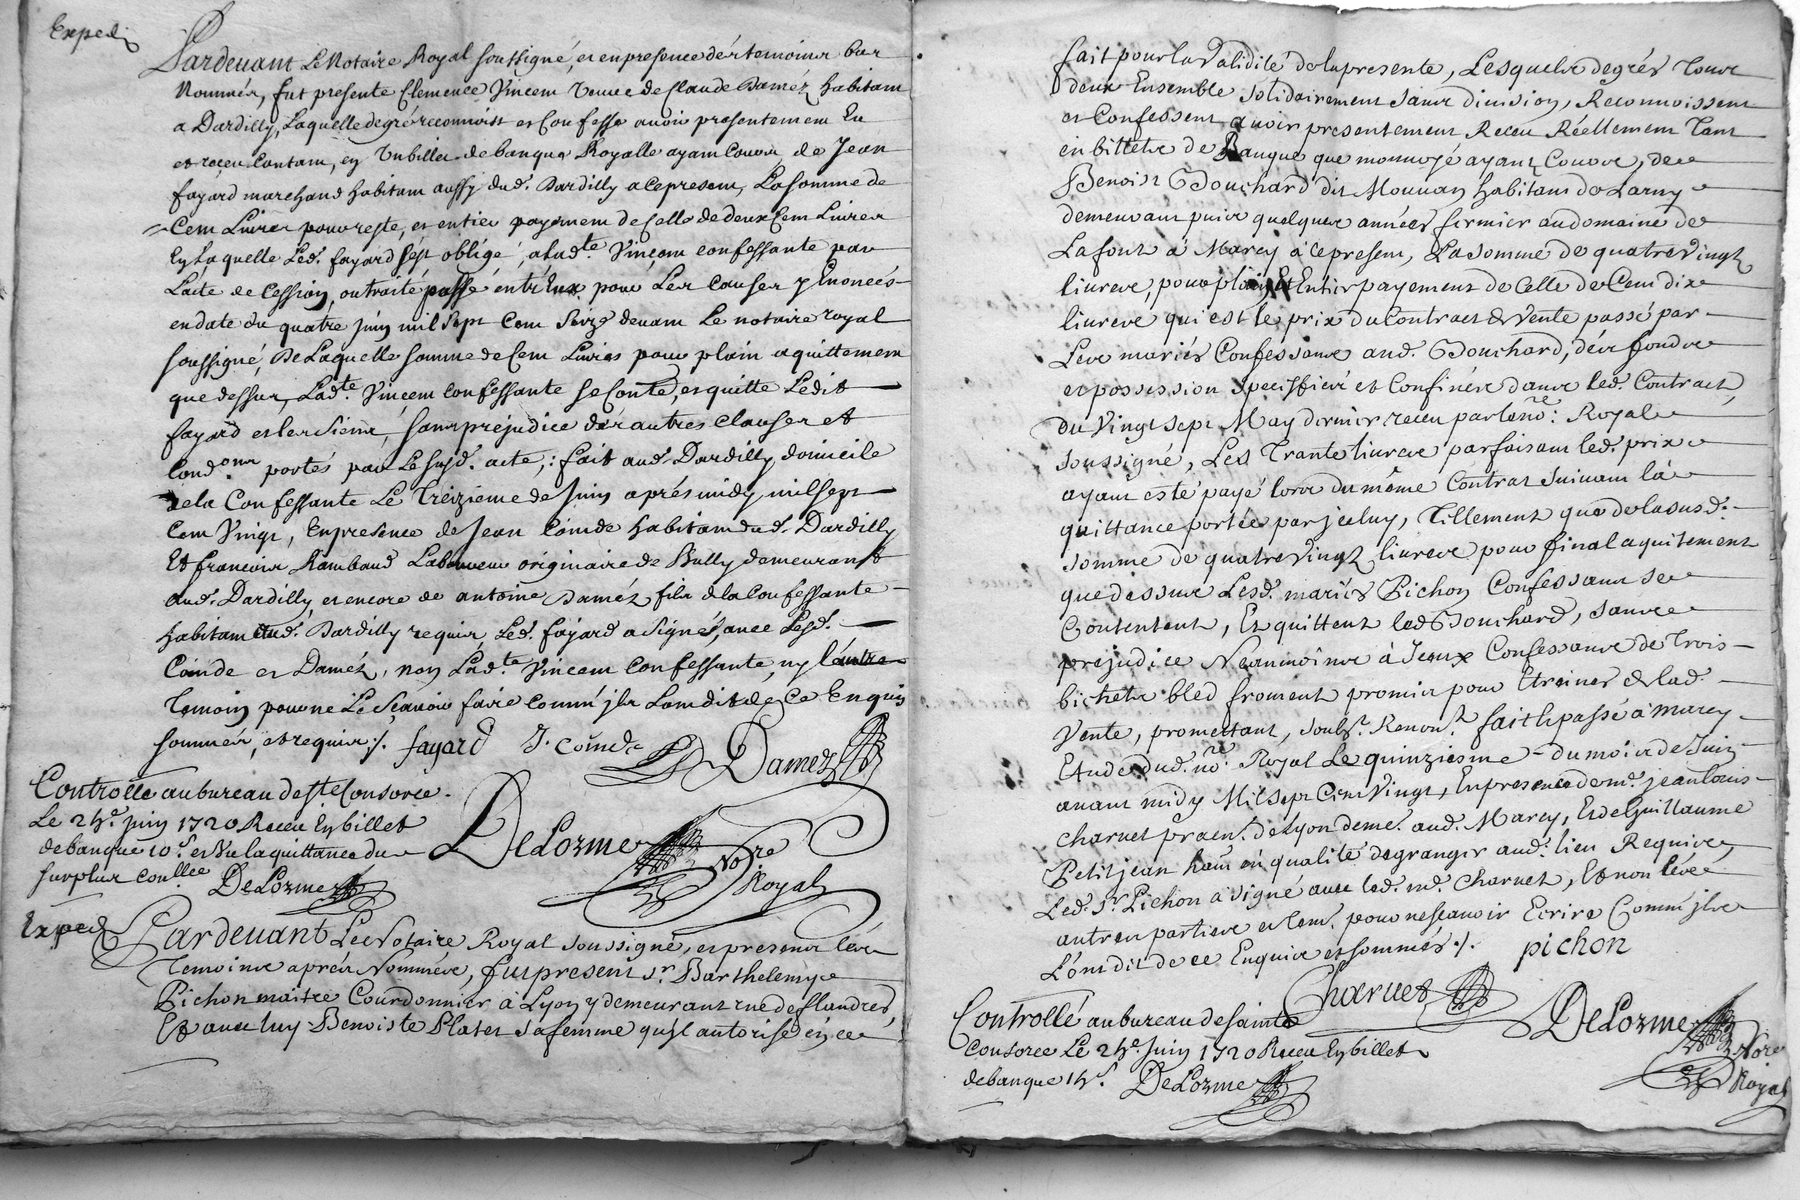 Expedié
Pardevant Le Notaire Royal soussigné, et en presence des temoins bas
Nommés, fut presente Clemence Vincent veuve de Claude Damés habitant
a Dardilly, Laquelle de gré reconnoist et Confesse avoir presentement Eu
et reçeu Contant, en Un billet de banque Royalle ayant Cours de Jean
fayard marchand habitant aussy dud. Dardilly a ce present, La somme de
Cent Livres pour reste, et entier payement de Celle de deux Cent Livres
En Laquelle Led. fayard s'est obligé, a lad.te Vincent confessante par
L'acte de Cession, ou traité passé entr'Eux pour Les Causes y Enoncées
en date du quatre juin mil sept Cent seize devant Le notaire royal
soussigné, De Laquelle somme de Cent Livres pour plain aquittement
que dessus, Lad.te Vincent confessante se Conte, et quitte Ledit
fayard et les siens, sans prejudice des autres Clauses et
Cond.ons portés par Le susd. acte, : fait aud. Dardilly domicile
de la Confessante Le Treizieme de Juin aprés midy mil sept
Cent Vingt, En presence de Jean Coinde habitant dud. Dardilly
Et francois Rambaud Laboureur originaire de Bully demeurant
aud. Dardilly, et encore de antoine Damés fils de la Confessante
habitant dud. Dardilly requis, Led. fayard a signé, avec Lesd.
Coinde et Damés, non Lad.te Vincent confessante, ny l'autre
Temoin pour ne Le sçavoir faire comm'ils L'ont dit de ce Enquis
sommés, et requis ./. fayard J. Coinde
Damez
Controllé au bureau de Ste Consorce
Le 24e. juin 1720 Receu En billet
de banque 10 s. et Vu la quittance du
surplus con.llée
DeLorme
DeLorme
No.re
Royal
Exped
Pardevant Le Notaire Royal soussigné, et presens les
Temoins aprés Nommés, fut present sr. Barthelemy
Pichon maitre Courdonnier à Lyon y demeurant rue de flandres,
Et avec luy Benoiste Plater sa femme qu'il autorise en ce
fait pour la Validité de la presente, Lesquels de grés Tous
deux Ensemble solidairement sans division, Reconnoissent
et Confessent avoir presentement Receu Réellement Tant
en billets de Banque que monnoyé ayant Cours, de
Benoist Bouchard dit Mouvan habitant de Larny
demeurant puis quelques années firmier au domaine de
Lafont à Marcy à ce present, La somme de quatre Vingt
livres, pour plein Et Entier payement de Celle de Cent dix
livres qui est le prix du Contract de Vente passé par
Les mariés Confessans aud. Bouchard, des fonds
et possession specifiées et Confinés dans led. Contract
du Vingt sept May dernier receu par le no.re Royal
soussigné, Les Trante livres parfaisant led. prix
ayant esté payé lors du même Contrat suivant la
quittance portée par jceluy, Tellement que de la susd.
somme de quatre Vingt livres pour final aquitement
que dessus Lesd. mariés Pichon Confessans se
Contentent, Et quittent led. Bouchard, sans
prejudice Neanmoins à Jceux Confessans de Trois
bichets bled froment promis pour Etreines de lad.
Vente, promettant, soubs. Renon. fait & passé à Marcy
Etude dud. no.re Royal Le quinziesme du mois de Juin
avant midy Mil sept Cent Vingt, En presence de m.e jean louis
Charvet praen. de Lyon deme. aud. Marcy, Et de Guillaume
Petitjean en qualité de granger aud. lieu Requis,
Led. sr. Pichon a signé avec led. m.e Charvet, Et non les
autres parties et tem. pour ne scavoir Ecrire Comm'jls
L'ont dit de ce Enquis et sommés ./. pichon
Charvet
DeLorme
No.re
Royal
Controllé au bureau de sainte
Consorce Le 24e. Juin 1720 Receu En billet
de banque 14 s. DeLorme